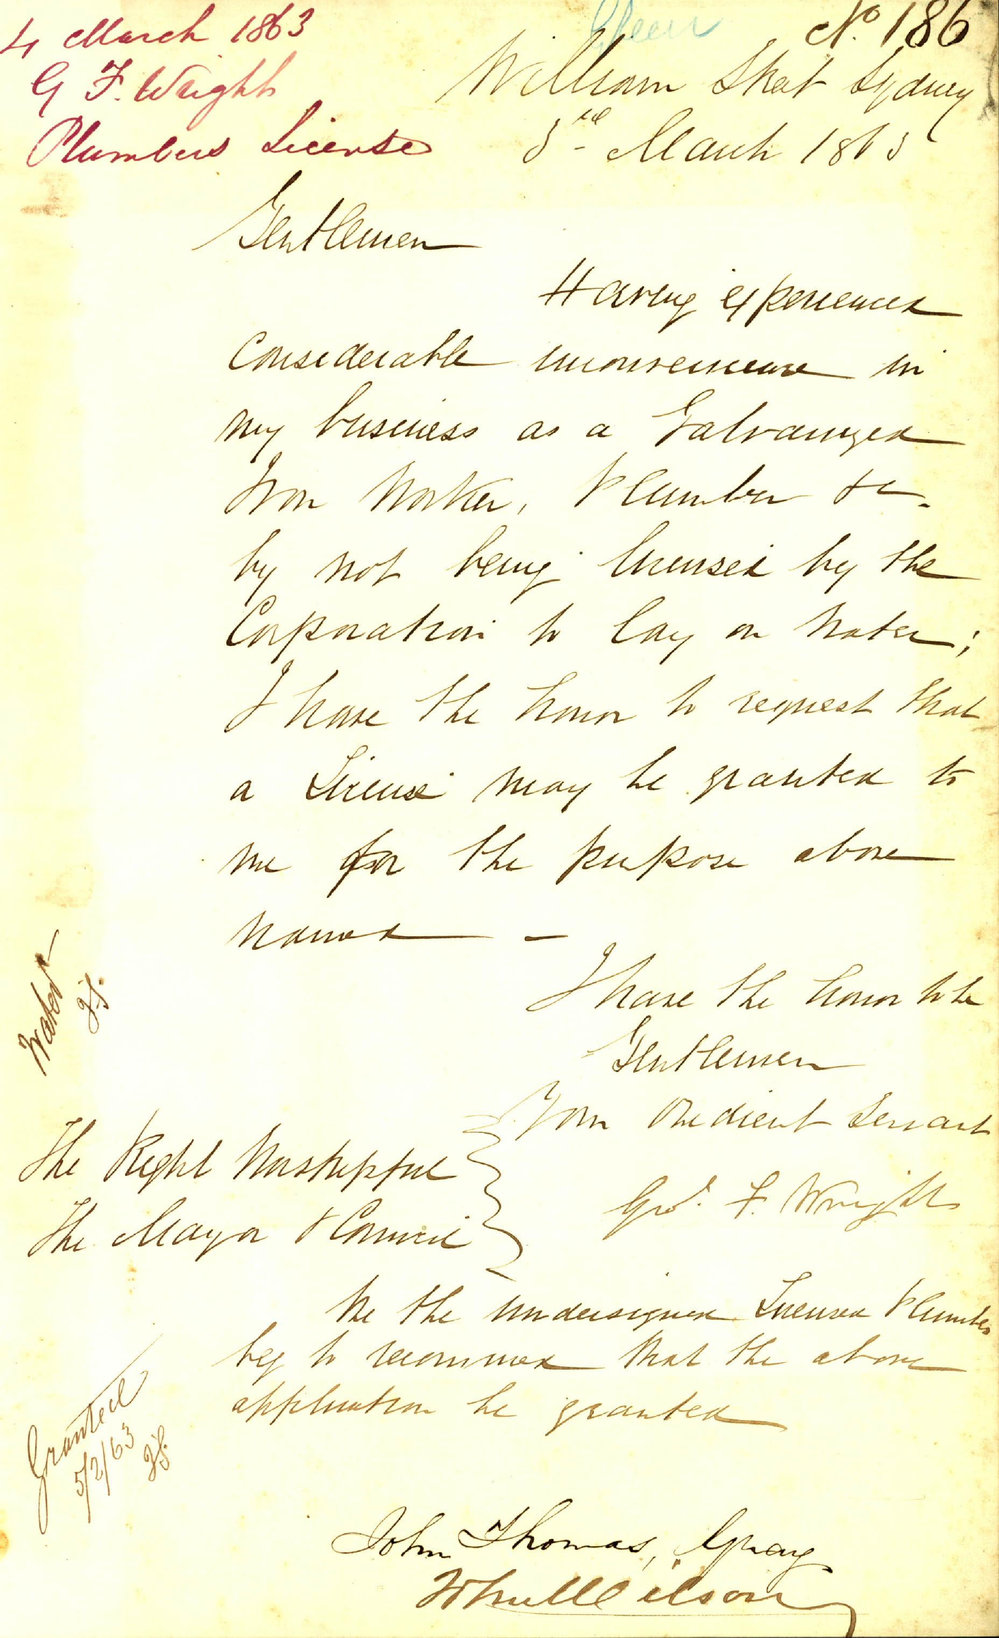 4 March 1863
G F. Wright
Plumbers License
No. 186
William Street Sydney
3rd March 1863
Gentlemen
Having experienced
Considerable inconvenience in
my business as a Galvanized
Iron Worker, Plumber &c.
by not being licensed by the
Corporation to lay on Water;
I have the honor to request that
a License may be granted to
me for the purpose above
named —
I have the honor to be
Gentlemen
Your Obedient Servant
Geo. F. Wright
The Right Worshipful
The Mayor & Council
Water
We the undersigned Licensed Plumbers
beg to recommend that the above
application be granted
Granted
5/2/63
John Thomas, Gray
Wilson